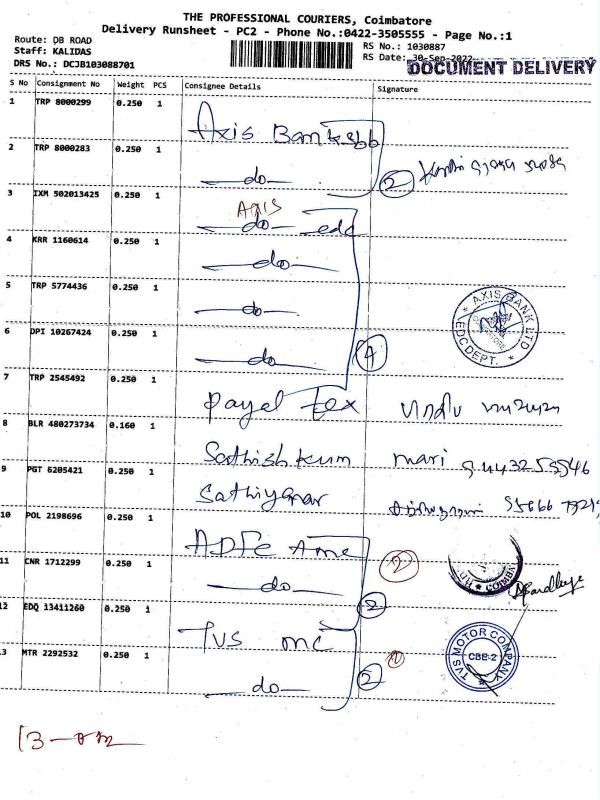 THE PROFESSIONAL COURIERS, Coimbatore
Delivery Runsheet - PC2 - Phone No.:0422-3505555 - Page No.:1
Route: DB ROAD
Staff: KALIDAS
DRS No.: DCJB103088701
RS No.: 1030887
RS Date: 30-Sep-2022
DOCUMENT DELIVERY
S No Consignment No Weight PCS Consignee Details Signature
1 TRP 8000299 0.250 1 Axis Bank
2 TRP 8000283 0.250 1 do 2
3 IXM 502013425 0.250 1 Axis do edc
4 KRR 1160614 0.250 1 do
5 TRP 5774436 0.250 1 do
AXIS BANK LTD EDC DEPT.
6 DPI 10267424 0.250 1 do 4
7 TRP 2545492 0.250 1 Payel Tex
8 BLR 480273734 0.160 1 Sathish kum mari
9 PGT 6205421 0.250 1
10 POL 2198696 0.250 1
11 CNR 1712299 0.250 1 do 2
12 EDQ 13411260 0.250 1 TVS mc 2
13 MTR 2292532 0.250 1 do 2
TVS MOTOR COMPANY CBE-2
13